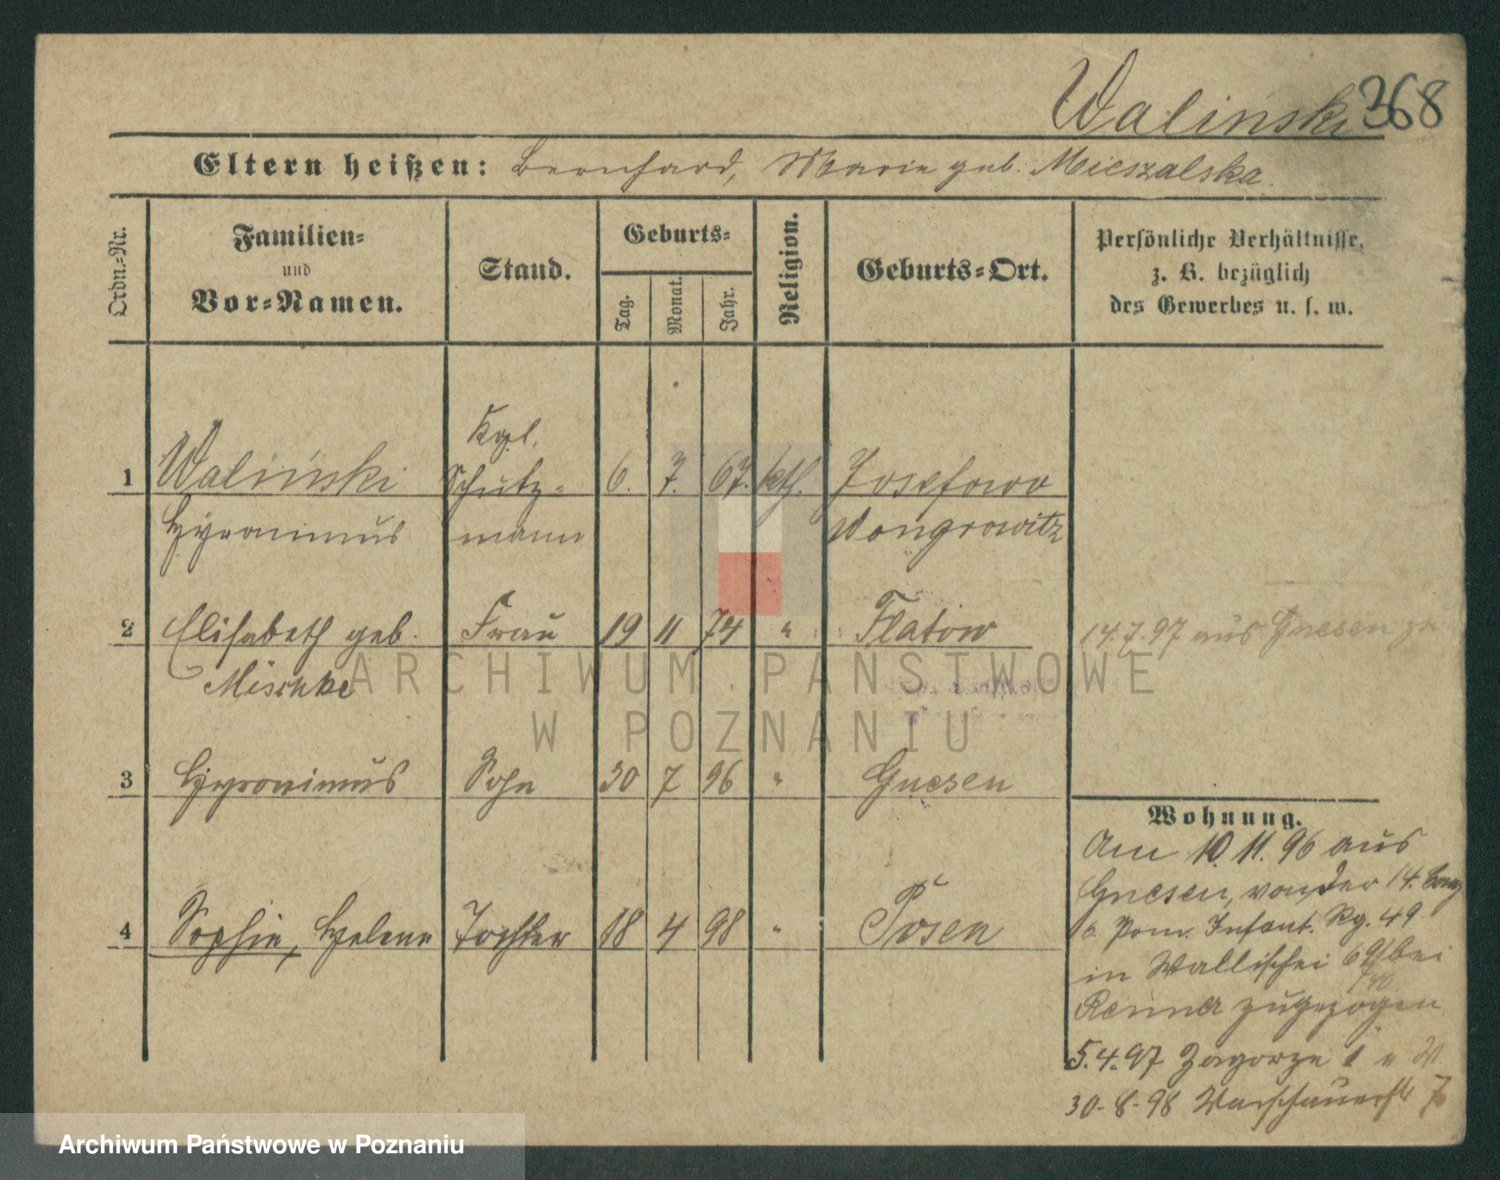 Waliński 368
Eltern heißen: Bernhard, Marie geb. Mieszalska.
Ordn.-Nr.
Familien-
und
Vor-Namen.
Stand.
Geburts-
Tag.
Monat.
Jahr.
Religion.
Geburts-Ort.
Persönliche Verhältnisse,
z. B. bezüglich
des Gewerbes u. s. w.
Kgl.
1 Waliński Schutz- 6. 7. 67. kth. Josefowo
Hyronimus mann Wongrowitz
2 Elisabeth geb. Frau 19 11 74 " Flatow 14.7.97 aus Gnesen zu
Mischke
3 Hyronimus Sohn 30 7 96 " Gnesen
Wohnung.
Am 10. 11. 96 aus
Gnesen, von der 14. Comp
4 Sophie, Helene Tochter 18 4 98 " Posen
6 Pom. Infant. Rg. 49
in Wallischei 69 bei
Renner zugezogen
5.4.97 Zagorze 1
30.8.98 Warschauerstr 7
ARCHIWUM PAŃSTWOWE
W POZNANIU
Archiwum Państwowe w Poznaniu